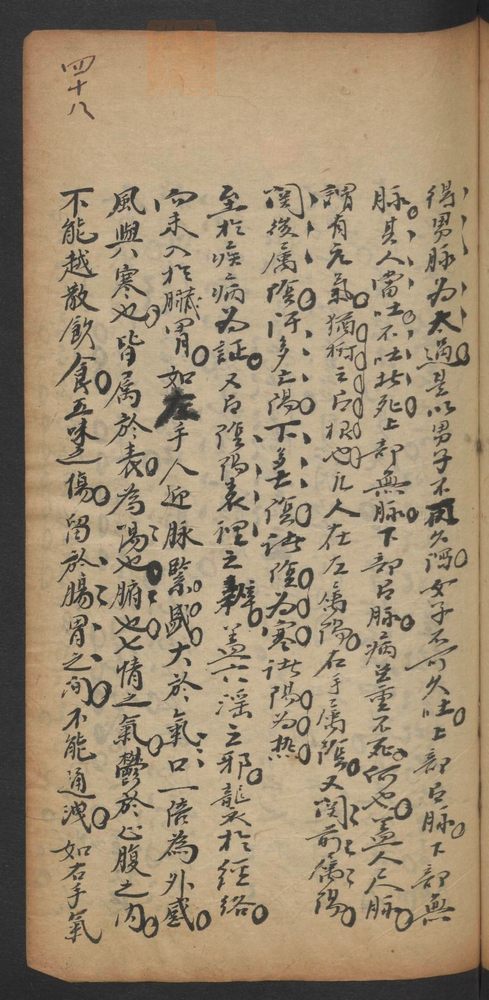 得男脉為太過是以男子不可久瀉女子不可久吐上部有脉下部無
脉其人當吐不吐者死上部無脉下部有脉病雖重不死何也盖人尺脉
謂有元氣猶樹之有根也凡人在左屬陽右手屬陰又関前屬陽
関後屬陰汗多亡陽下多亡陰諸陰為寒諸陽為热
至於疾病為証又有陰陽表裡之辨盖六淫之邪襲於經絡
而未入於臟胃如左手人迎脉緊盛大於氣口一倍為外感
風與寒也皆属於表為陽也腑也七情之氣鬱於心腹之内
不能越散飲食五味之傷留於腸胃之间不能通洩如右手氣
四十八